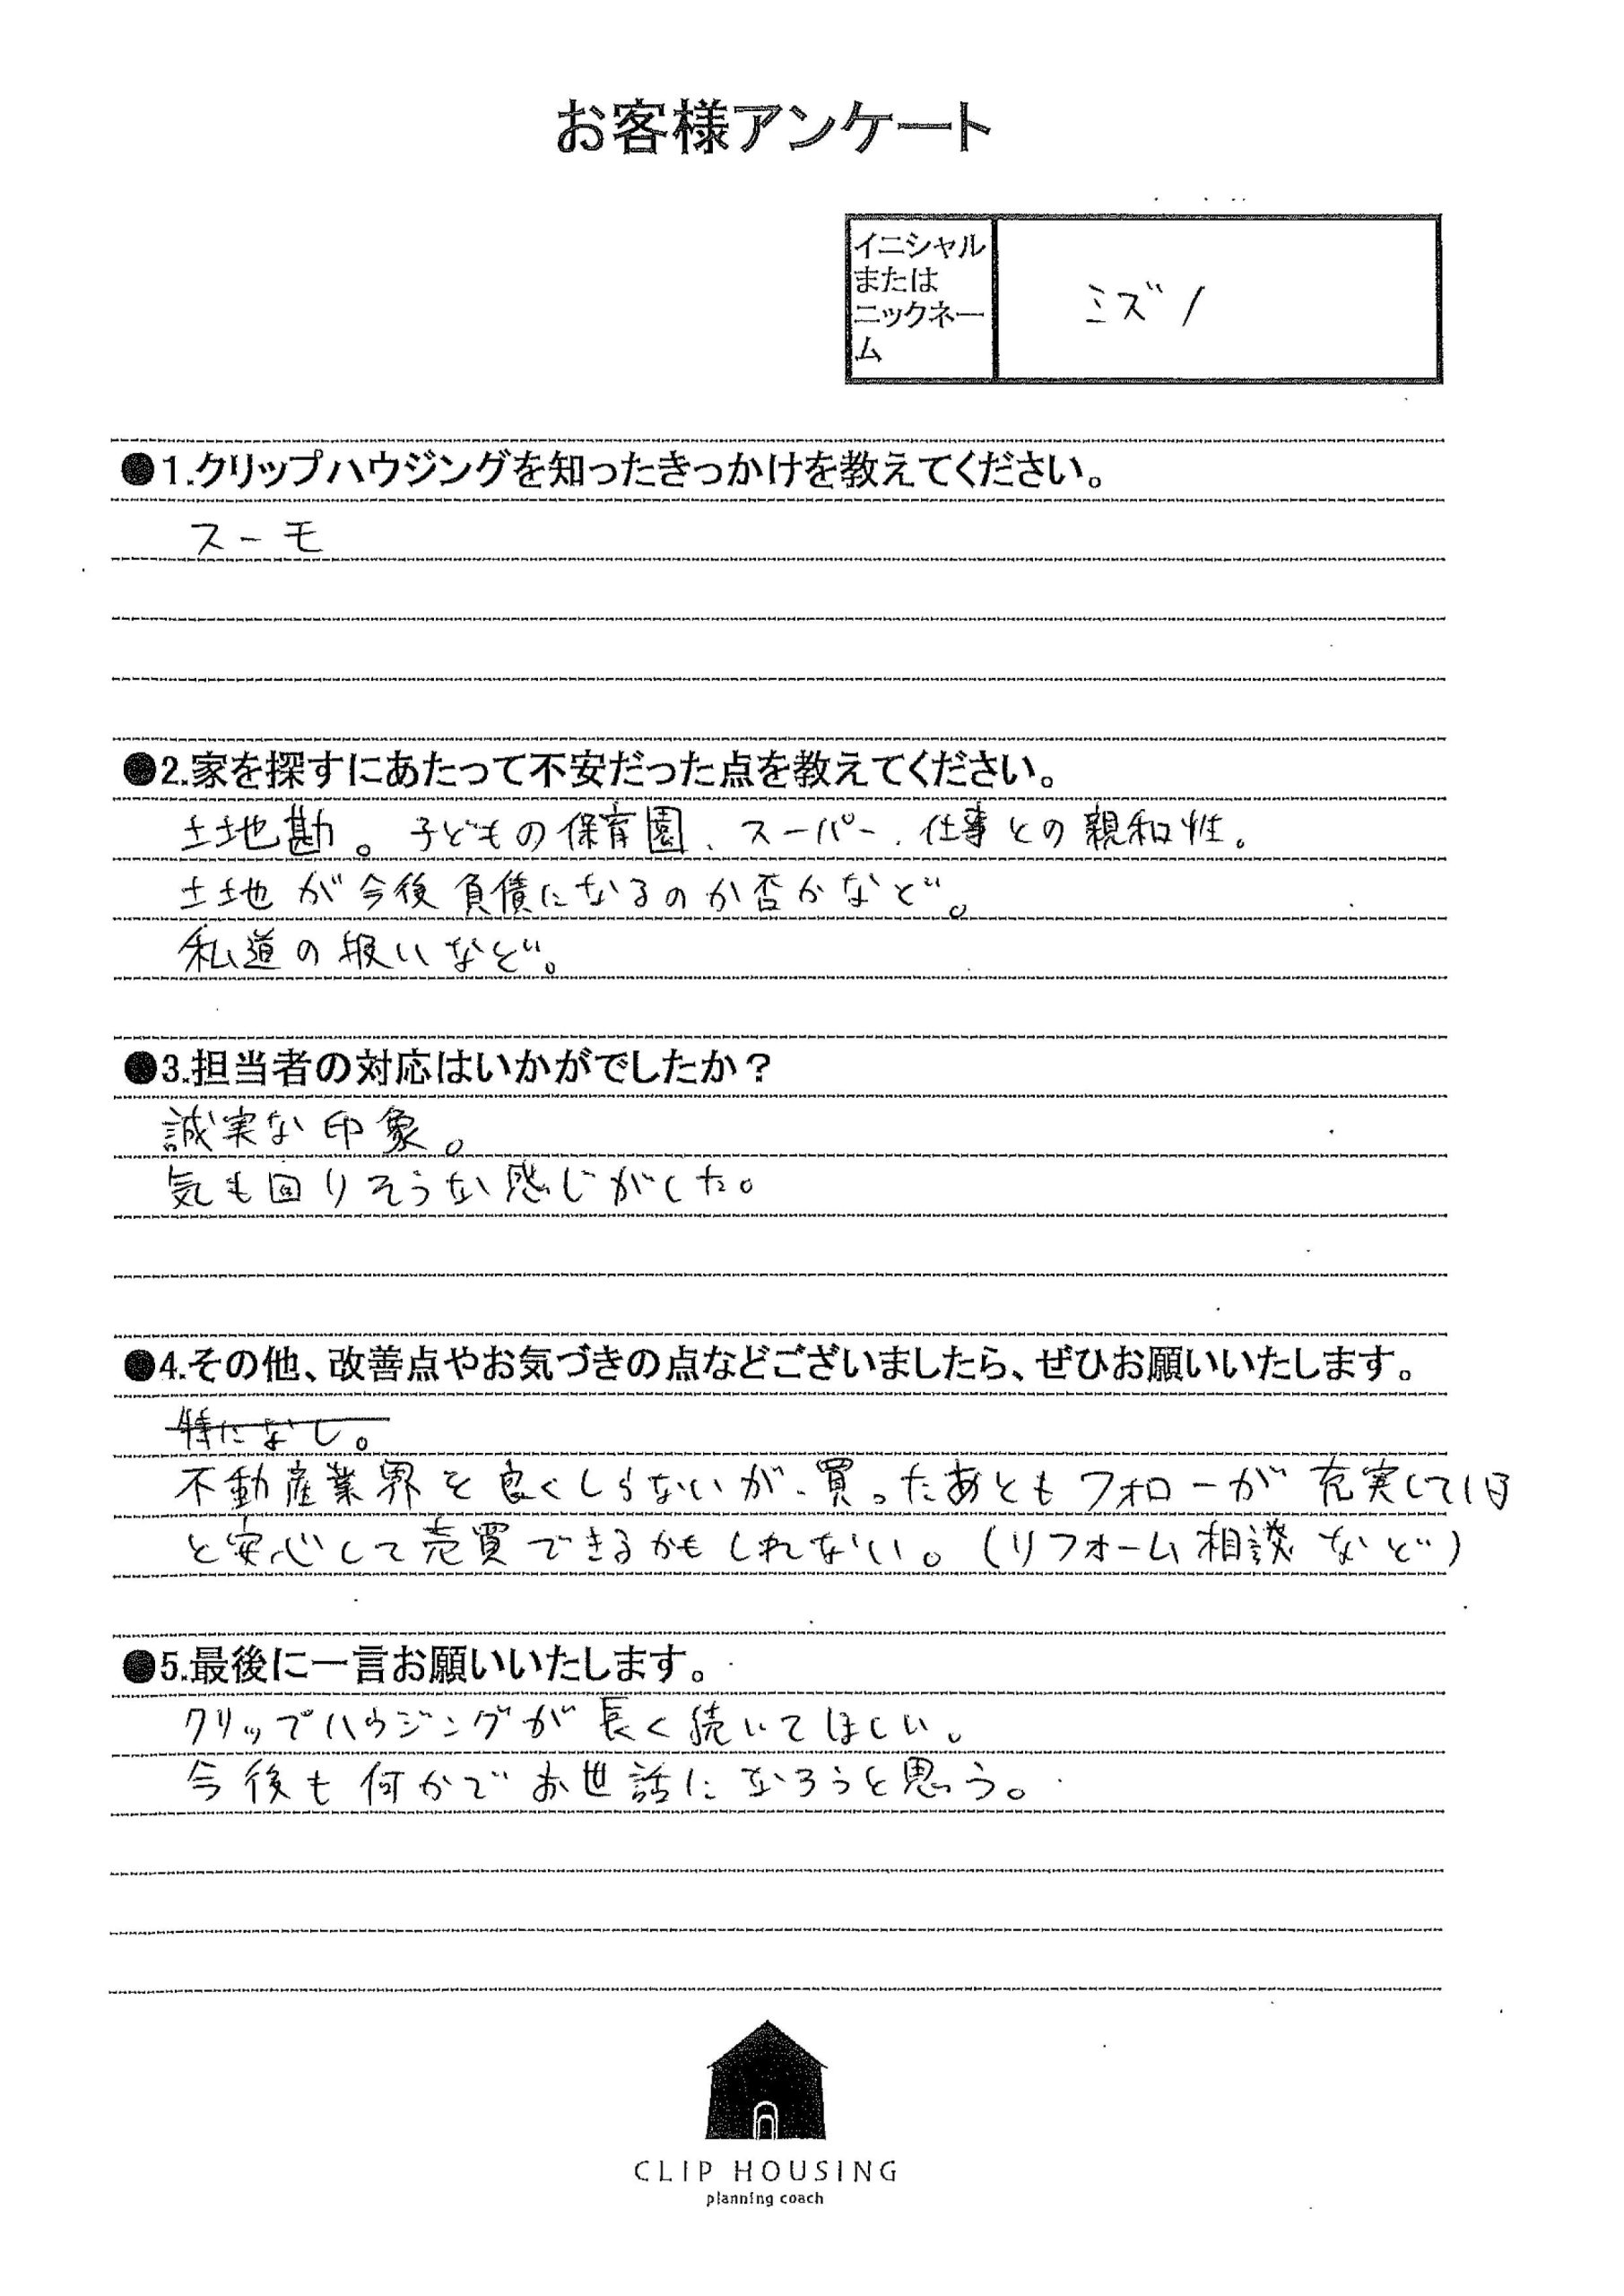 お客様アンケート
イニシャル
または
ニックネー
ム
ミズノ
●1.クリップハウジングを知ったきっかけを教えてください。
スーモ
●2.家を探すにあたって不安だった点を教えてください。
土地勘。子どもの保育園、スーパー、仕事との親和性。
土地が今後負債になるのか否かなど。
私道の扱いなど。
●3.担当者の対応はいかがでしたか？
誠実な印象。
気も回りそうな感じがした。
●4.その他、改善点やお気づきの点などございましたら、ぜひお願いいたします。
特になし。
不動産業界を良くしらないが、買ったあともフォローが充実している
と安心して売買できるかもしれない。（リフォーム相談など）
●5.最後に一言お願いいたします。
クリップハウジングが長く続いてほしい。
今後も何かでお世話になろうと思う。
CLIP HOUSING
planning coach